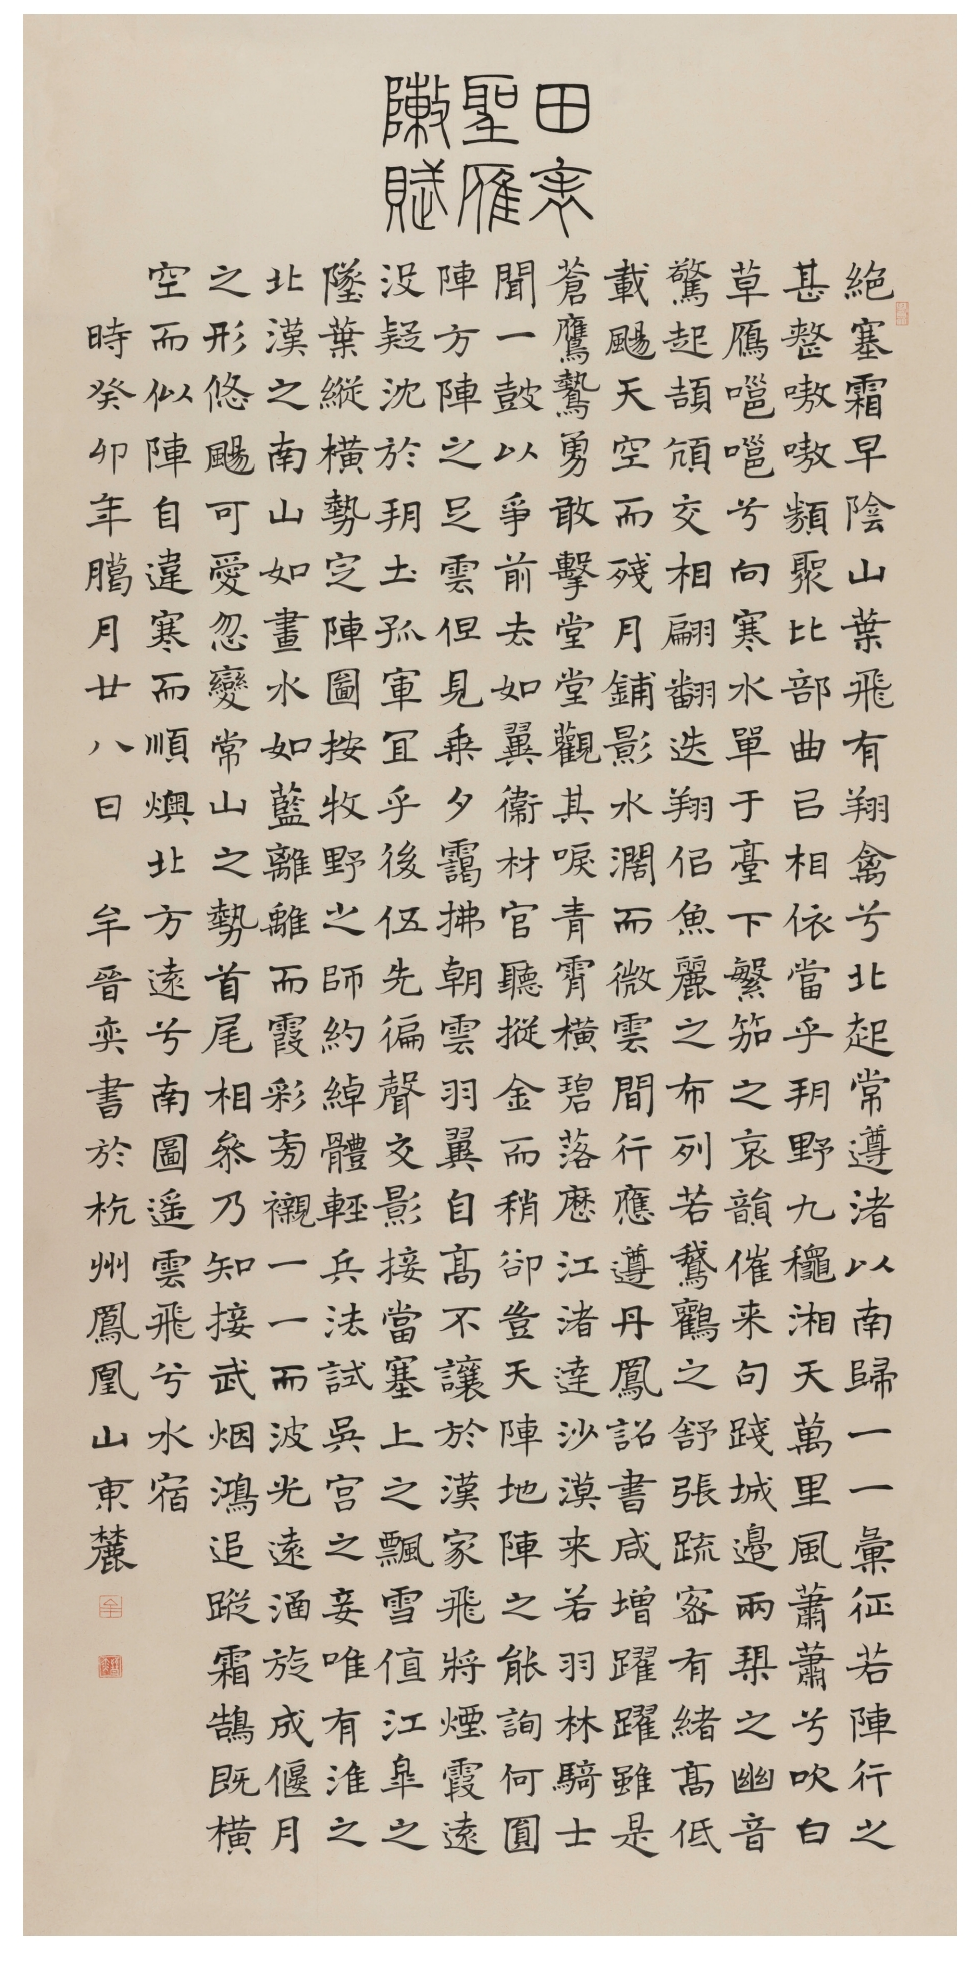 田表
聖雁
敶賦
絕塞霜早陰山葉飛有翔禽兮北起常遵渚以南歸一一彙征若陣行之
甚整嗷嗷類聚比部曲已相依當乎朔野九龝湘天萬里風蕭蕭兮吹白
草鴈嗈嗈兮向寒水單于臺下繁笳之哀韻催来句踐城邊兩槳之幽音
驚起頡頏交相翩翻迭翔佀魚麗之布列若鵞鸛之舒張疏密有緒髙低
載颺天空而殘月鋪影水濶而微雲間行應遵丹鳳詔書咸增躍躍雖是
蒼鷹鷙勇敢擊堂堂觀其唳青霄橫碧落歷江渚達沙漠来若羽林騎士
聞一鼓以爭前去如翼衞材官聽摐金而稍卻豈天陣地陣之能詢何圓
陣方陣之足雲但見乘夕靄拂朝雲羽翼自髙不讓於漢家飛將煙霞遠
没疑沈於朔土孤軍冝乎後伍先徧聲交影接當塞上之飄雪值江皐之
墜葉縱橫勢定陣圖按牧野之師約綽體輕兵法試吳宮之妾唯有淮之
北漢之南山如畫水如藍離離而霞彩旁襯一一而波光遠涵旋成偃月
之形悠颺可愛忽變常山之勢首尾相叅乃知接武烟鴻追蹤霜鵠既橫
空而似陣自違寒而順燠北方遠兮南圖遥雲飛兮水宿
時癸卯年臈月廿八日 牟晉奕書於杭州鳳凰山東麓